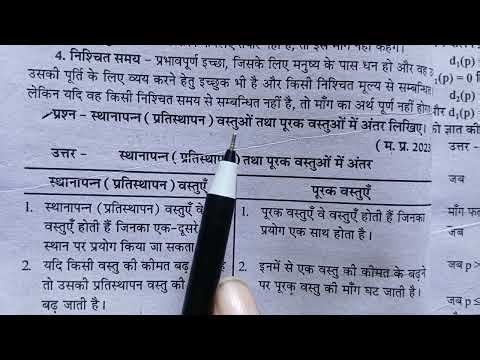 4. निश्चित समय – प्रभावपूर्ण इच्छा, जिसके लिए मनुष्य के पास धन हो और वह उ
उसकी पूर्ति के लिए व्यय करने हेतु इच्छुक भी है और किसी निश्चित मूल्य से सम्बन्धित
लेकिन यदि वह किसी निश्चित समय से सम्बन्धित नहीं है, तो माँग का अर्थ पूर्ण नहीं होगा
प्रश्न – स्थानापन्न ( प्रतिस्थापन ) वस्तुओं तथा पूरक वस्तुओं में अंतर लिखिए।
( म. प्र. 2023
उत्तर – स्थानापन्न ( प्रतिस्थापन ) तथा पूरक वस्तुओं में अंतर
स्थानापन्न ( प्रतिस्थापन ) वस्तुएँ
1. स्थानापन्न ( प्रतिस्थापन ) वस्तुएँ वे
वस्तुएँ होती हैं जिनका एक-दूसरे
स्थान पर प्रयोग किया जा सकता
2. यदि किसी वस्तु की कीमत बढ़
तो उसकी प्रतिस्थापन वस्तु की
बढ़ जाती है।
पूरक वस्तुएँ
1. पूरक वस्तुएँ वे वस्तुएँ होती हैं जिनका
प्रयोग एक साथ होता है।
2. इनमें से एक वस्तु की कीमत के बढ़ने
पर पूरक वस्तु की माँग घट जाती है।
d₁(p) =
d₁(p) = 0
d₂(p)
d₂(p) =
को ज्ञात की
जब
माँग फल
जब p >
जब p ≤